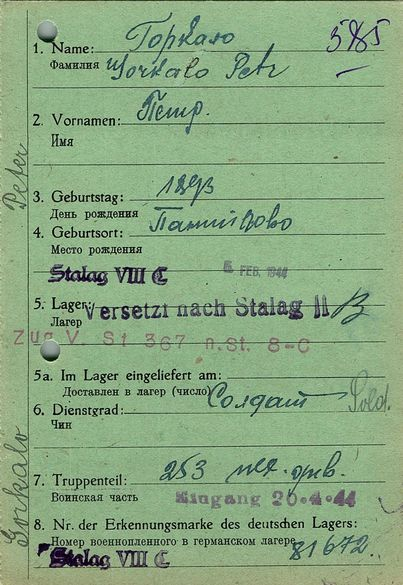 585
1. Name: Горкало
Фамилия Gorkalo Petr
2. Vornamen: Петр.
Имя
3. Geburtstag: 1893
День рождения
4. Geburtsort:
Место рождения
Stalag VIII C FEB. 1944
5. Lager: Versetzt nach Stalag II B
Лагер
Zug V. St 367 n. St. 8-C
5a. Im Lager eingeliefert am:
Доставлен в лагер (число) Солдат Sold.
6. Dienstgrad:
Чин
7. Truppenteil: 253
Воинская часть Eingang 20.4.44
8. Nr. der Erkennungsmarke des deutschen Lagers:
Номер военнопленного в германском лагере 81672.
Stalag VIII C
Gorkalo Peter